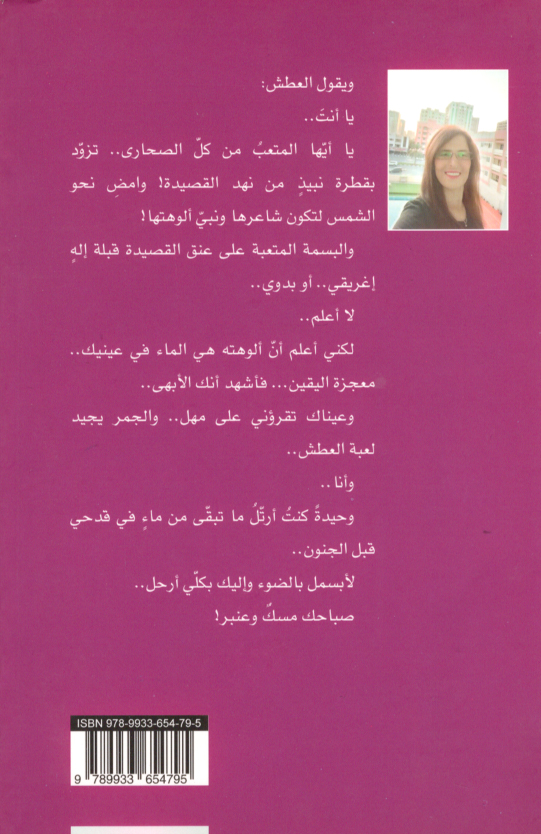 ويقول العطش:
يا أنتَ..
يا أيّها المتعبُ من كلّ الصحارى.. تزوّد
بقطرة نبيذٍ من نهد القصيدة! وامضِ نحو
الشمس لتكون شاعرها ونبيّ ألوهتها!
والبسمة المتعبة على عنق القصيدة قبلة إلهٍ
إغريقي.. أو بدوي..
لا أعلم..
لكني أعلم أنّ ألوهته هي الماء في عينيك..
معجزة اليقين... فأشهد أنك الأبهى..
وعيناك تقرؤني على مهل.. والجمر يجيد
لعبة العطش..
وأنا..
وحيدةً كنتُ أرتّلُ ما تبقّى من ماءٍ في قدحي
قبل الجنون..
لأبسمل بالضوء وإليك بكلّي أرحل..
صباحك مسكٌ وعنبر!
ISBN 978-9933-654-79-5
9 789933 654795